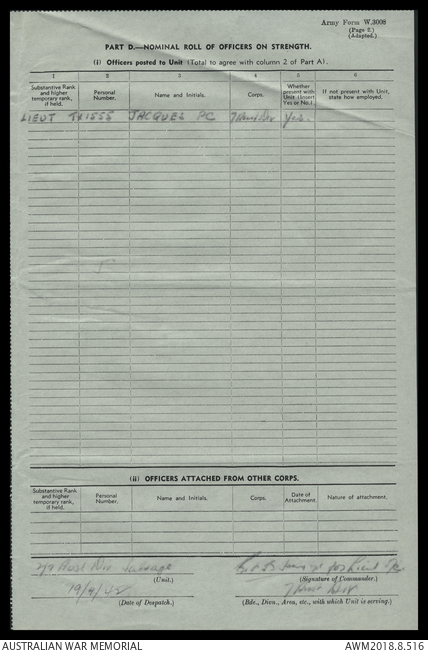 Army Form W.3008
(Page 2.)
(Adapted.)
PART D.—NOMINAL ROLL OF OFFICERS ON STRENGTH.
(i) Officers posted to Unit (Total to agree with column 2 of Part A).
1 2 3 4 5 6
Substantive Rank and higher temporary rank, if held. Personal Number. Name and Initials. Corps. Whether present with Unit (Insert Yes or No.) If not present with Unit, state how employed.
LIEUT TX1555 JACQUES PC Yes.
(ii) OFFICERS ATTACHED FROM OTHER CORPS.
Substantive Rank and higher temporary rank, if held. Personal Number. Name and Initials. Corps. Date of Attachment. Nature of attachment.
Div Salvage
(Unit.) (Signature of Commander.)
19/4/42 7 Div
(Date of Despatch.) (Bde., Divn., Area, etc., with which Unit is serving.)
AUSTRALIAN WAR MEMORIAL AWM2018.8.516